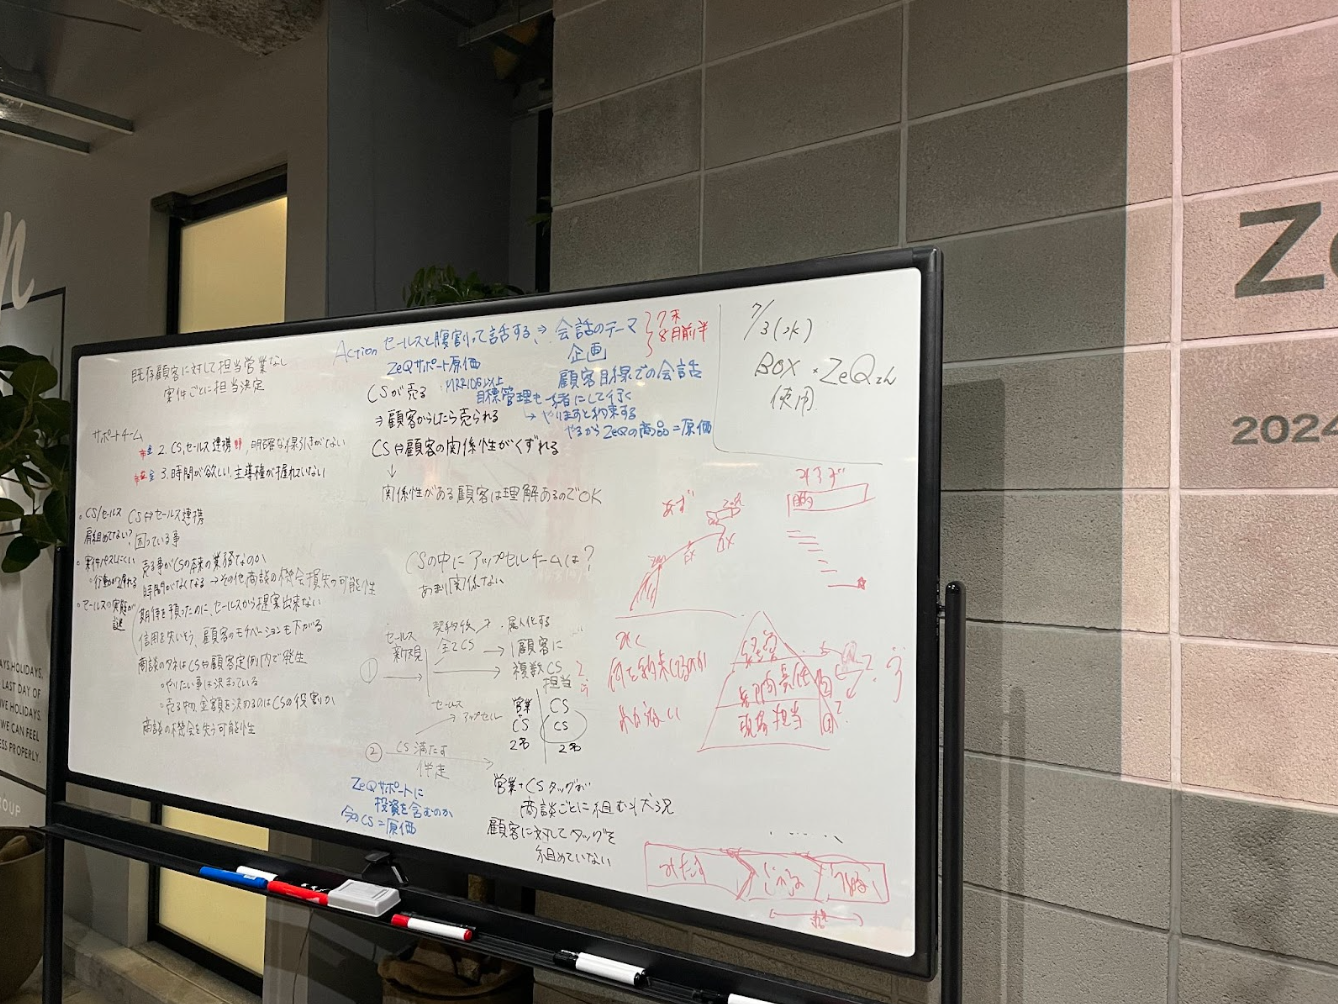 既存顧客に対して担当営業なし
案件ごとに担当決定
サポートチーム
2. CS,セールス連携
3. 時間が欲しい, 主導権が握れていない
・CS/セールス
肩組めてない?
・案件パスしにくい
・行動が遅れる
・セールスの実態が
謎
CS⇔セールス連携
困っている事
売る事がCSの本来の業務なのか
時間がなくなる→その他商談の機会損失の可能性
期待を預ったのに、セールスから提案出来ない
信用を失いそう、顧客のモチベーションも下がる
商談のタネはCS⇔顧客定例内で発生
○やりたい事は決まっている
○売る物、金額を決めるのはCSの役割か
商談の機会を失う可能性
Action セールスと腹割って話する、⇒ 会話のテーマ
企画
7末
8月前半
ZeQサポート原価
顧客目線での会話
CSが売る
目標管理も一緒にして行く
⇒顧客からしたら売られる
→やりますと約束する
やるからZeQの商品=原価
CS⇔顧客の関係性がくずれる
↓
関係性がある顧客は理解あるのでOK
CSの中にアップセルチームは?
あまり関係ない
①
セールス
新規
契約後
全てCS
・属人化する
顧客に
複数CS
担当
②
セールス
→アップセル
CS 満たす
伴走
営業
CS
2名
CS
CS
2名
ZeQサポートに
投資を含むのか
今のCS=原価
営業+CSタッグが
商談ごとに組む状況
顧客に対してタッグを
組めていない
7/3(水)
BOX・ZeQさん
使用
何を約束しているのか
経営
部門責任
現場担当
みたす
Ze
2024
AYS.HOLIDAYS.
LAST DAY OF
WE CAN FEEL
ESS PROPERLY.